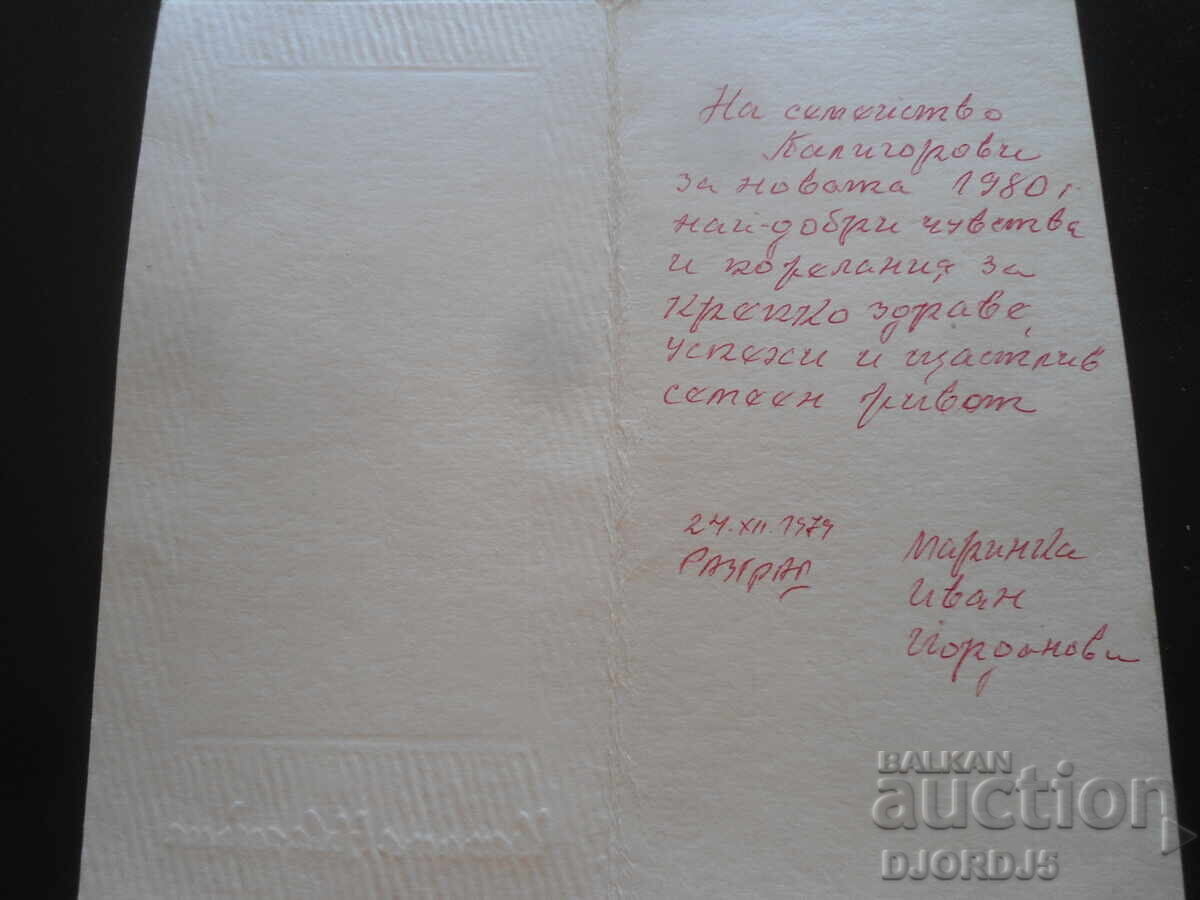 На семейство
Калигорови
за новата 1980 г.
най-добри чувства
и пожелания за
крепко здраве,
успехи и щастлив
семеен живот
24.XII.1979
РАЗГРАД
Маринка
Иван
Йорданови
BALKAN
auction
DJORDJ5